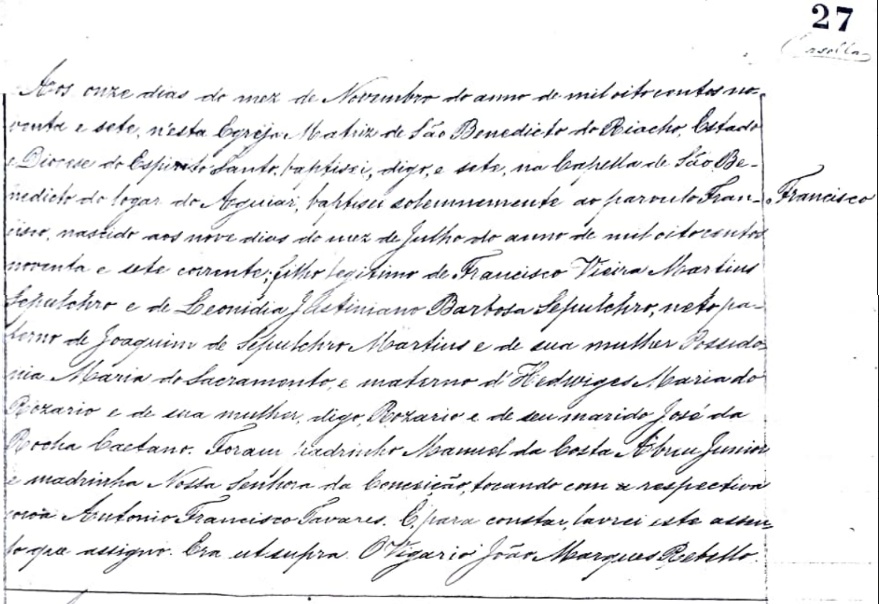 27
Aos onze dias do mez de Novembro do anno de mil oito centos no-
venta e sete, n'esta Egreja Matriz de São Benedicto do Riacho, Estado
e Diocese do Espirito Santo, baptisei, digo, e sete, na Capella de São Be-
nedicto do logar do Aguiar, baptisei solemnemente ao parvulo Fran-
Francisco
cisco, nascido aos nove dias do mez de Julho do anno de mil oito centos
noventa e sete corrente; filho legitimo de Francisco Vieira Martins
Sepulchro e de Leonidia Justiniano Barbosa Sepulchro, neto pa-
terno de Joaquim de Sepulchro Martins e de sua mulher Possido-
nia Maria do Sacramento, e materno d'Hedwiges Maria do
Rozario e de sua mulher, digo, Rozario e de seu marido José da
Rocha Caetano. Foram padrinho Manuel da Costa Abreu Junior
e madrinha Nossa Senhora da Conceição, tocando com a respectiva
corôa Antonio Francisco Tavares. E, para constar, lavrei este assen-
to que assigno. Era ut supra. O Vigario João Marques Rebello.